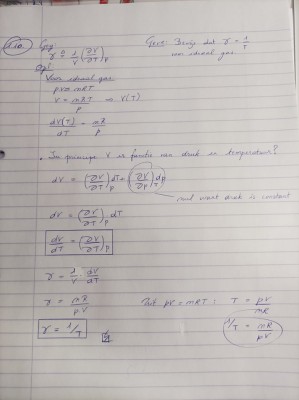 Geg
γ ≜ 1/V (∂V/∂T)p
Gevr: Bewijs dat γ = 1/T
voor ideaal gas
Opl
Voor ideaal gas
pV = mRT
V = mRT/p ⇒ V(T)
dV(T)/dT = mR/p
• In principe V is functie van druk en temperatuur?
dV = (∂V/∂T)p dT + (∂V/∂p)T dp
nul want druk is constant
dV = (∂V/∂T)p dT
dV/dT = (∂V/∂T)p
γ = 1/V · dV/dT
γ = mR/pV
pV = mRT : T = pV/mR
γ = 1/T
1/T = mR/pV